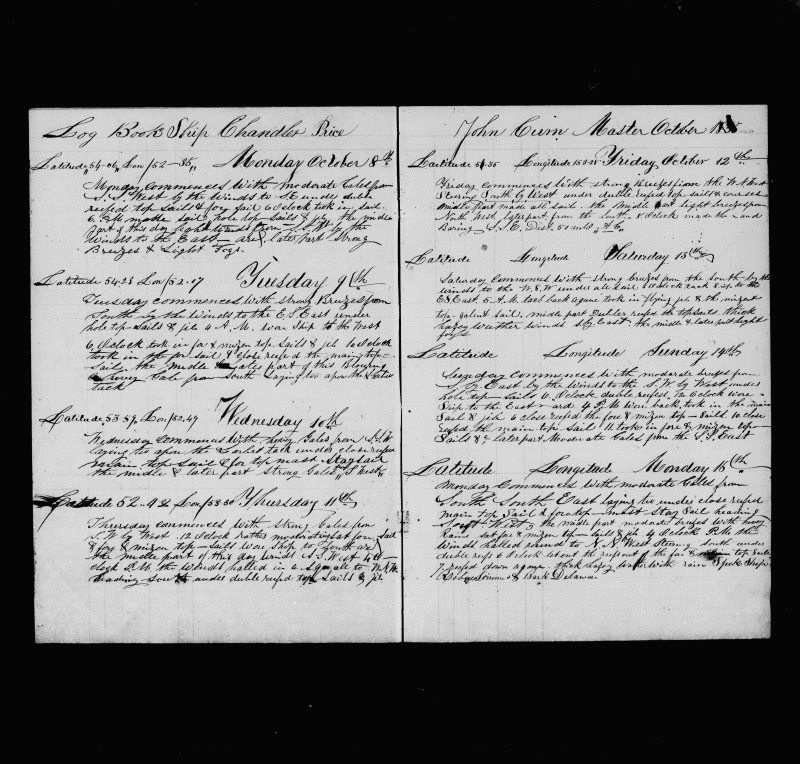 Log Book Ship Chandler Price
Latitude 54-06 Lon 152-35 Monday October 8th
Monday commences with moderate Gales from
S. S. West by the winds to SE under duble
reefed top sails & fore sail 6 Oclock took in sail
6. P.M. made sail hole top sails & jib the midle
part of this day light winds from S. S. W by the
winds to the East later part strong
Breezes & Light Fogs.
Latitude 54-23 Lon 152-07 Tuesday 9th
Tuesday commences with strong Breezes from
South by the winds to the E.S. East under
hole top sails & jib 4 A.M. wore ship to the West
6 Oclock took in for & mizen top sails & jib 10 Oclock
took in the for sail & close reefed the main top-
sails the midle part of this Blowing
a hevey Gale from South Laying too upon the
tack
Latitude 53-57 Lon 152,49 Wednesday 10th
Wednesday commences with hevy Gales from S.S.W
laying too upon the tack under close reefed
main top sail & for top mast staysail
the midle & later part strong Gales S West
Latitude 52-42 Lon 153-50 Thursday 11th
Thursday commences with strong Gales from
S. W by West. 12 Oclock rather moderating set for sail
& fore & mizen top-sails wore ship to South
the midle part of this day winds is S. West 4 O-
clock P.M. the winds halled in a squall to W.N.W
heading south under duble reefd top sails & jib
John Cum Master October 1835
Latitude 51.35 Longitude 153-15 Friday October 12th
Friday commences with strong Breezes from the W.N.West
Stering South by West under duble reefed top-sails & coursed
midle part made all sail. the midle part light breezes from
North West. later part from the South 8 Oclock made the Land
Baring S.S.E. Dist. 50 mls
Latitude Longitude Saturday 13th
Saturday Commences with strong breezes from the South by the
winds to the W.S.W under all sail 1 Oclock tack ship to the
E.S.East 5 A.M. tact back agane took in flying jib & the mizent
top-galent sail, middle part Dubler reefd the topsails thick
hazey wather winds S by East the midle & later part light
fogs
Latitude Longitude Sunday 14th
Sunday commences with moderate breezes from
S. by East by the winds to the S. W by West under
hole top-sails 6 Oclock duble reefed, 12 Oclock wore
Ship to the Eastward 4 P.M wore back, took in the main
sail & jib 6 close reefed the fore & mizen top-sails 10 close
reefed the main top sail 11 took in fore & mizen top-
sails &c later part Moderate Gales from the S.S. East
Latitude Longitude Monday 15th
Monday Commences with moderate Gales from
South South East laying too under close reefed
main top sail & foretop-mast stay sail heading
South West. the midle part moderate brezes with hevy
Rains set for & mizen top-sails & jib 4 Oclock P.M. the
winds halled around to N. N. West Stering South under
duble refs 6 Oclock let out the refs out of the for & top sails
7 reefed down agane. thick hazey wather with rain Spok Ship
& Bark Delaware